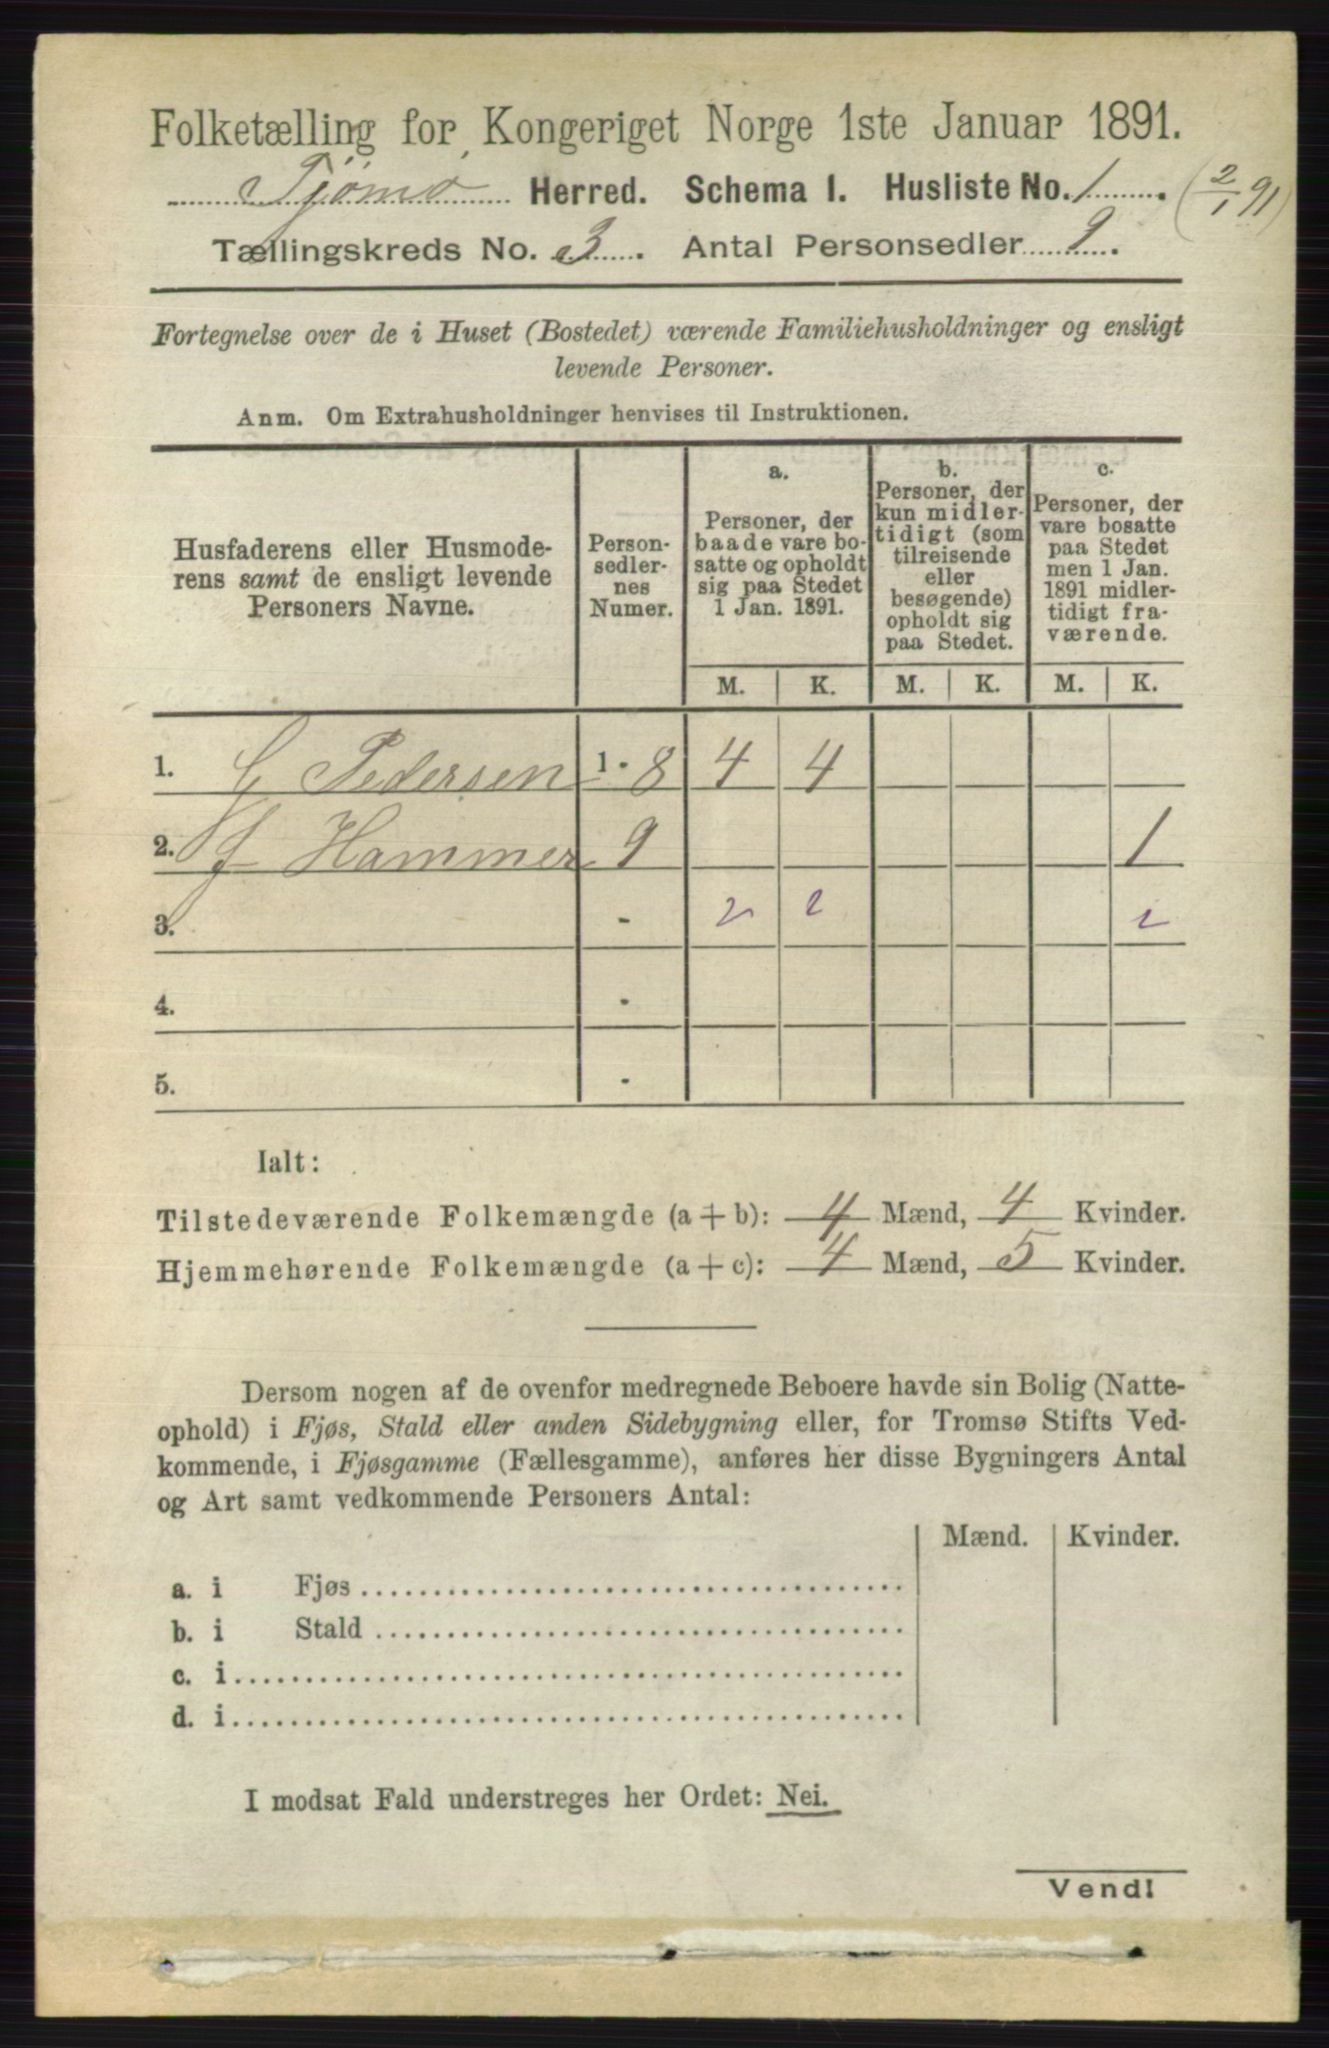 Folketælling for Kongeriget Norge 1ste Januar 1891.
Tjømø Herred. Schema 1. Husliste No. 1. (2/1 91)
Tællingskreds No. 3. Antal Personsedler 9.
Fortegnelse over de i Huset (Bostedet) værende Familiehusholdninger og ensligt
levende Personer.
Anm. Om Extrahusholdninger henvises til Instruktionen.
Husfaderens eller Husmode-
rens samt de ensligt levende
Personers Navne.
Person-
sedler-
nes
Numer.
a.
Personer, der
baade vare bo-
satte og opholdt
sig paa Stedet
1 Jan. 1891.
b.
Personer, der
kun midler-
tidigt (som
tilreisende
eller
besøgende)
opholdt sig
paa Stedet.
c.
Personer, der
vare bosatte
paa Stedet
men 1 Jan.
1891 midler-
tidigt fra-
værende.
M. K. M. K. M. K.
1. G Pedersen 1 - 8 4 4
2. J Hammer 9 1
3. - 2 2
4. -
5. -
Ialt:
Tilstedeværende Folkemængde (a + b): 4 Mænd, 4 Kvinder.
Hjemmehørende Folkemængde (a + c): 4 Mænd, 5 Kvinder.
Dersom nogen af de ovenfor medregnede Beboere havde sin Bolig (Natte-
ophold) i Fjøs, Stald eller anden Sidebygning eller, for Tromsø Stifts Ved-
kommende, i Fjøsgamme (Fællesgamme), anføres her disse Bygningers Antal
og Art samt vedkommende Personers Antal:
Mænd. Kvinder.
a. i Fjøs
b. i Stald
c. i
d. i
I modsat Fald understreges her Ordet: Nei.
Vend!